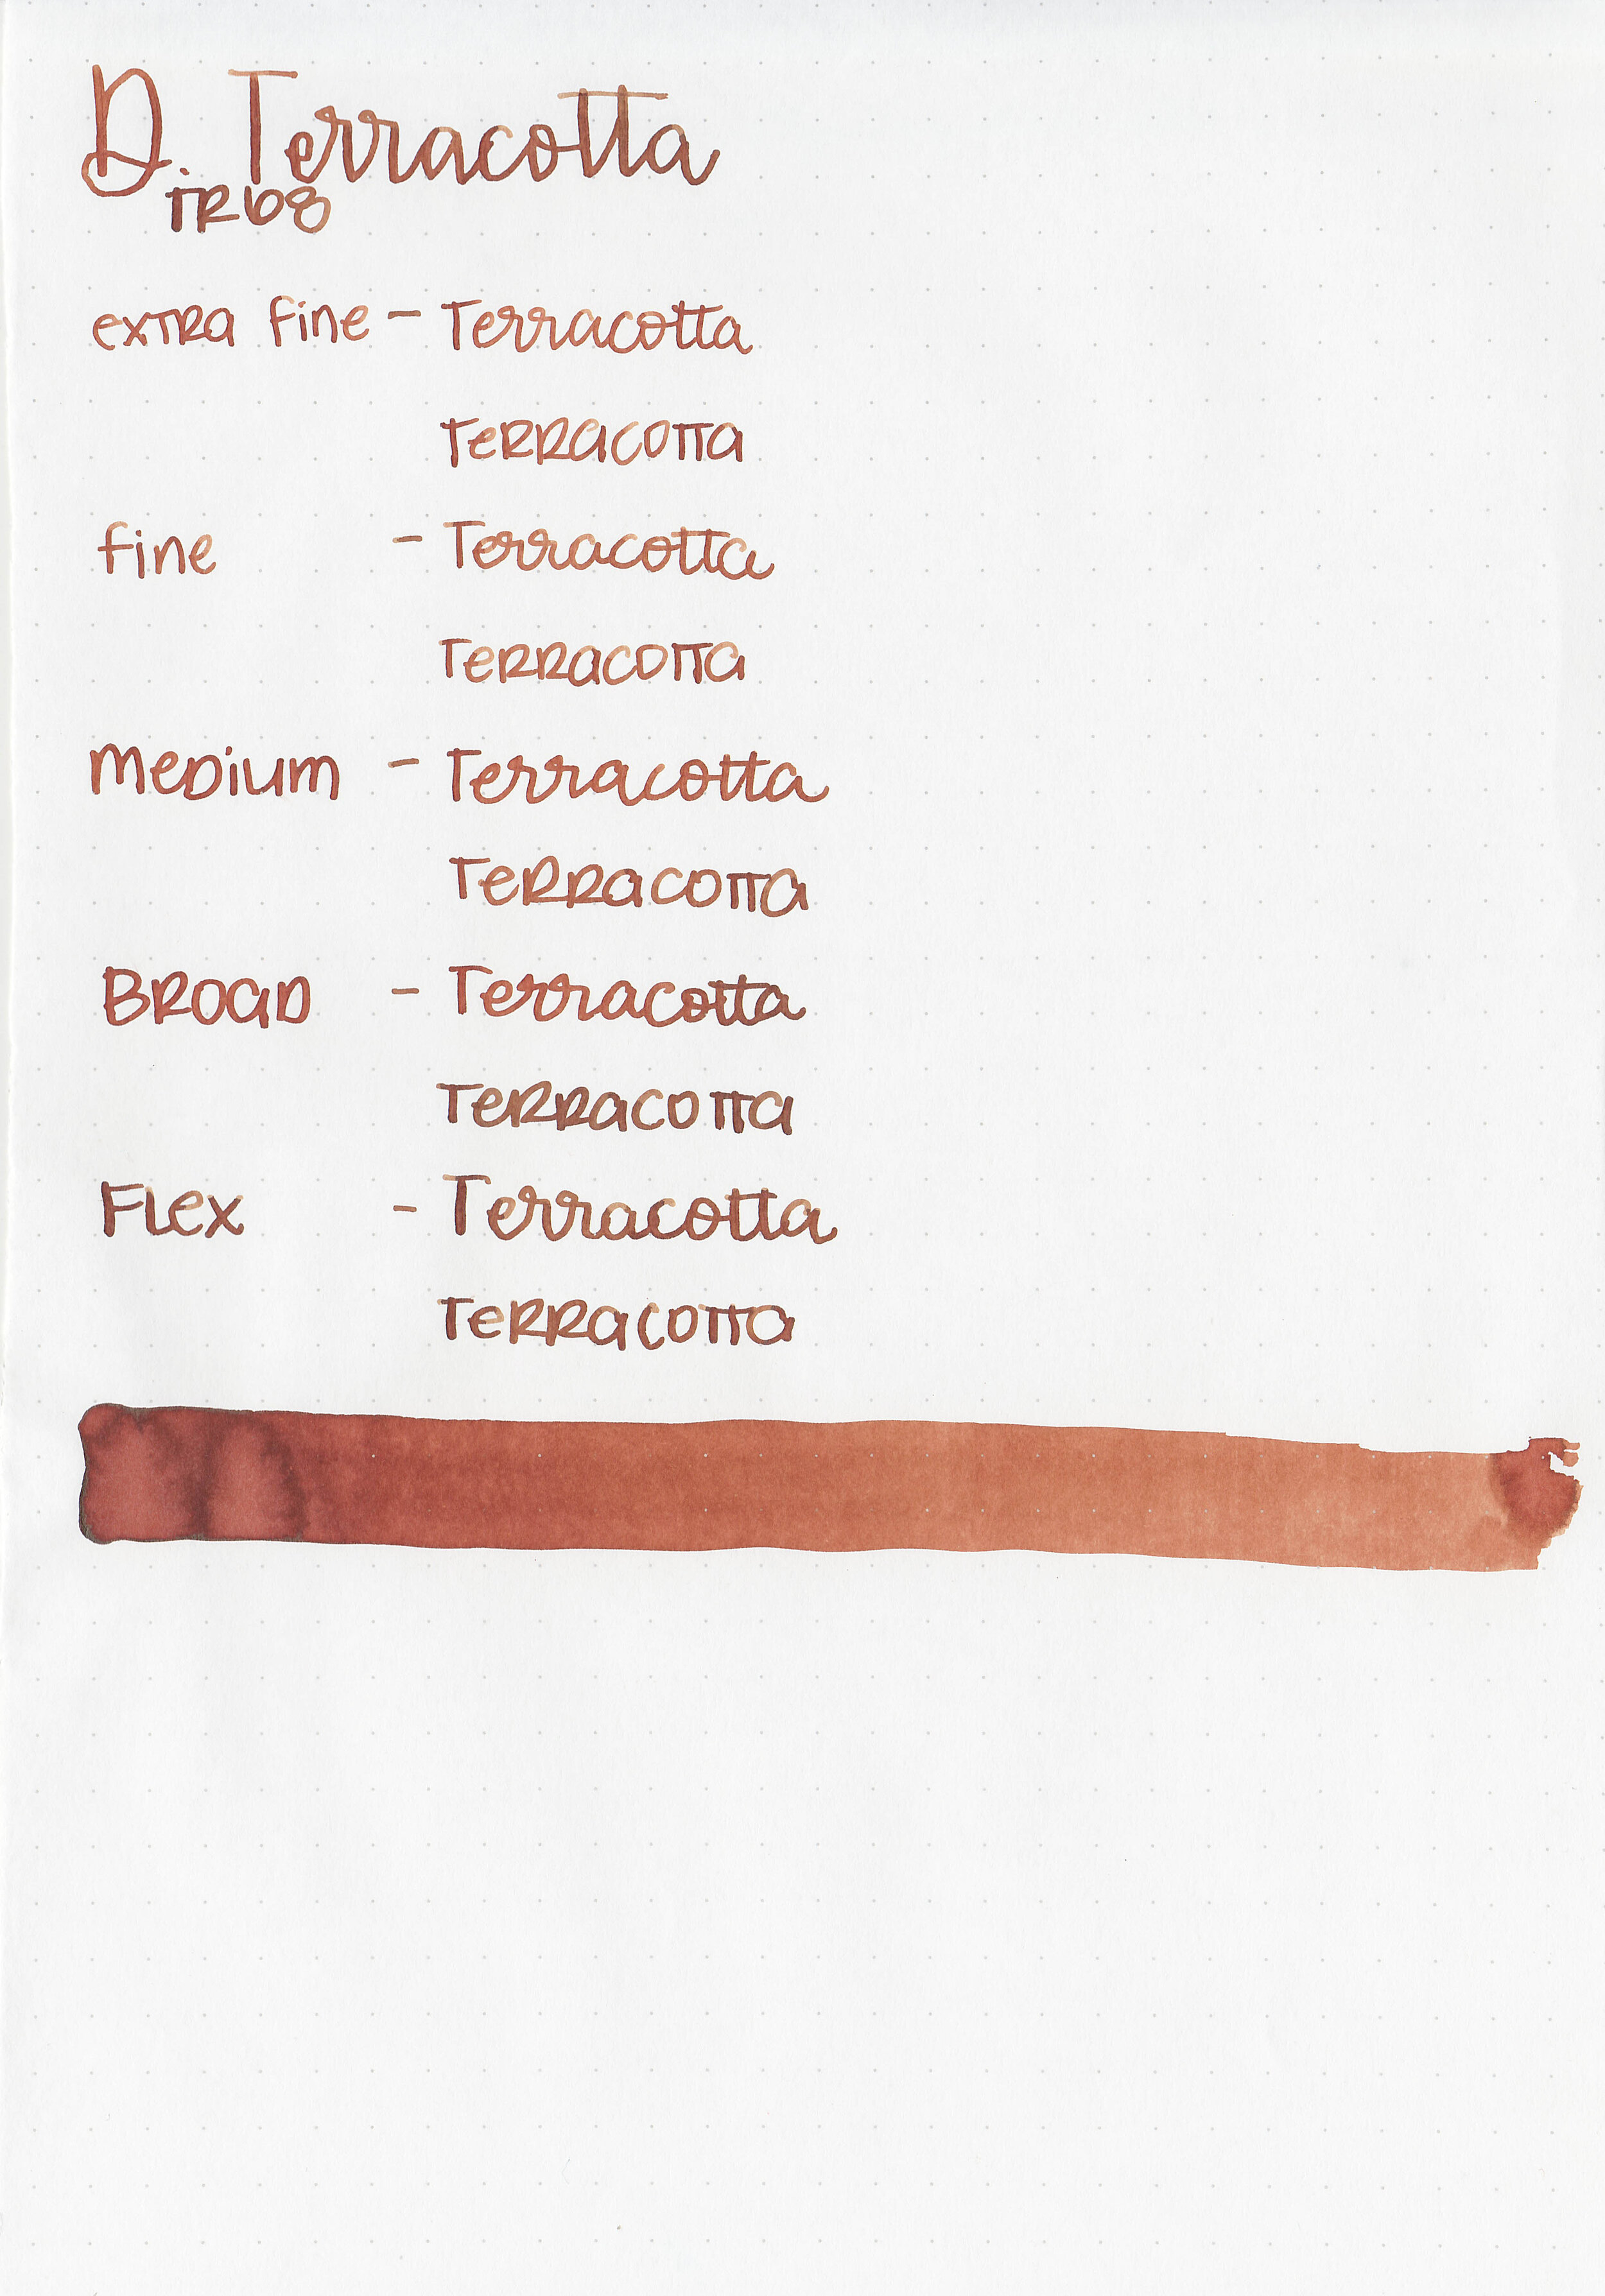 D. Terracotta
TR68
extra fine - Terracotta
TerraCOTTa
fine - Terracotta
TerraCOTTa
Medium - Terracotta
TerraCOTTa
Broad - Terracotta
TerraCOTTa
Flex - Terracotta
TerraCOTTa